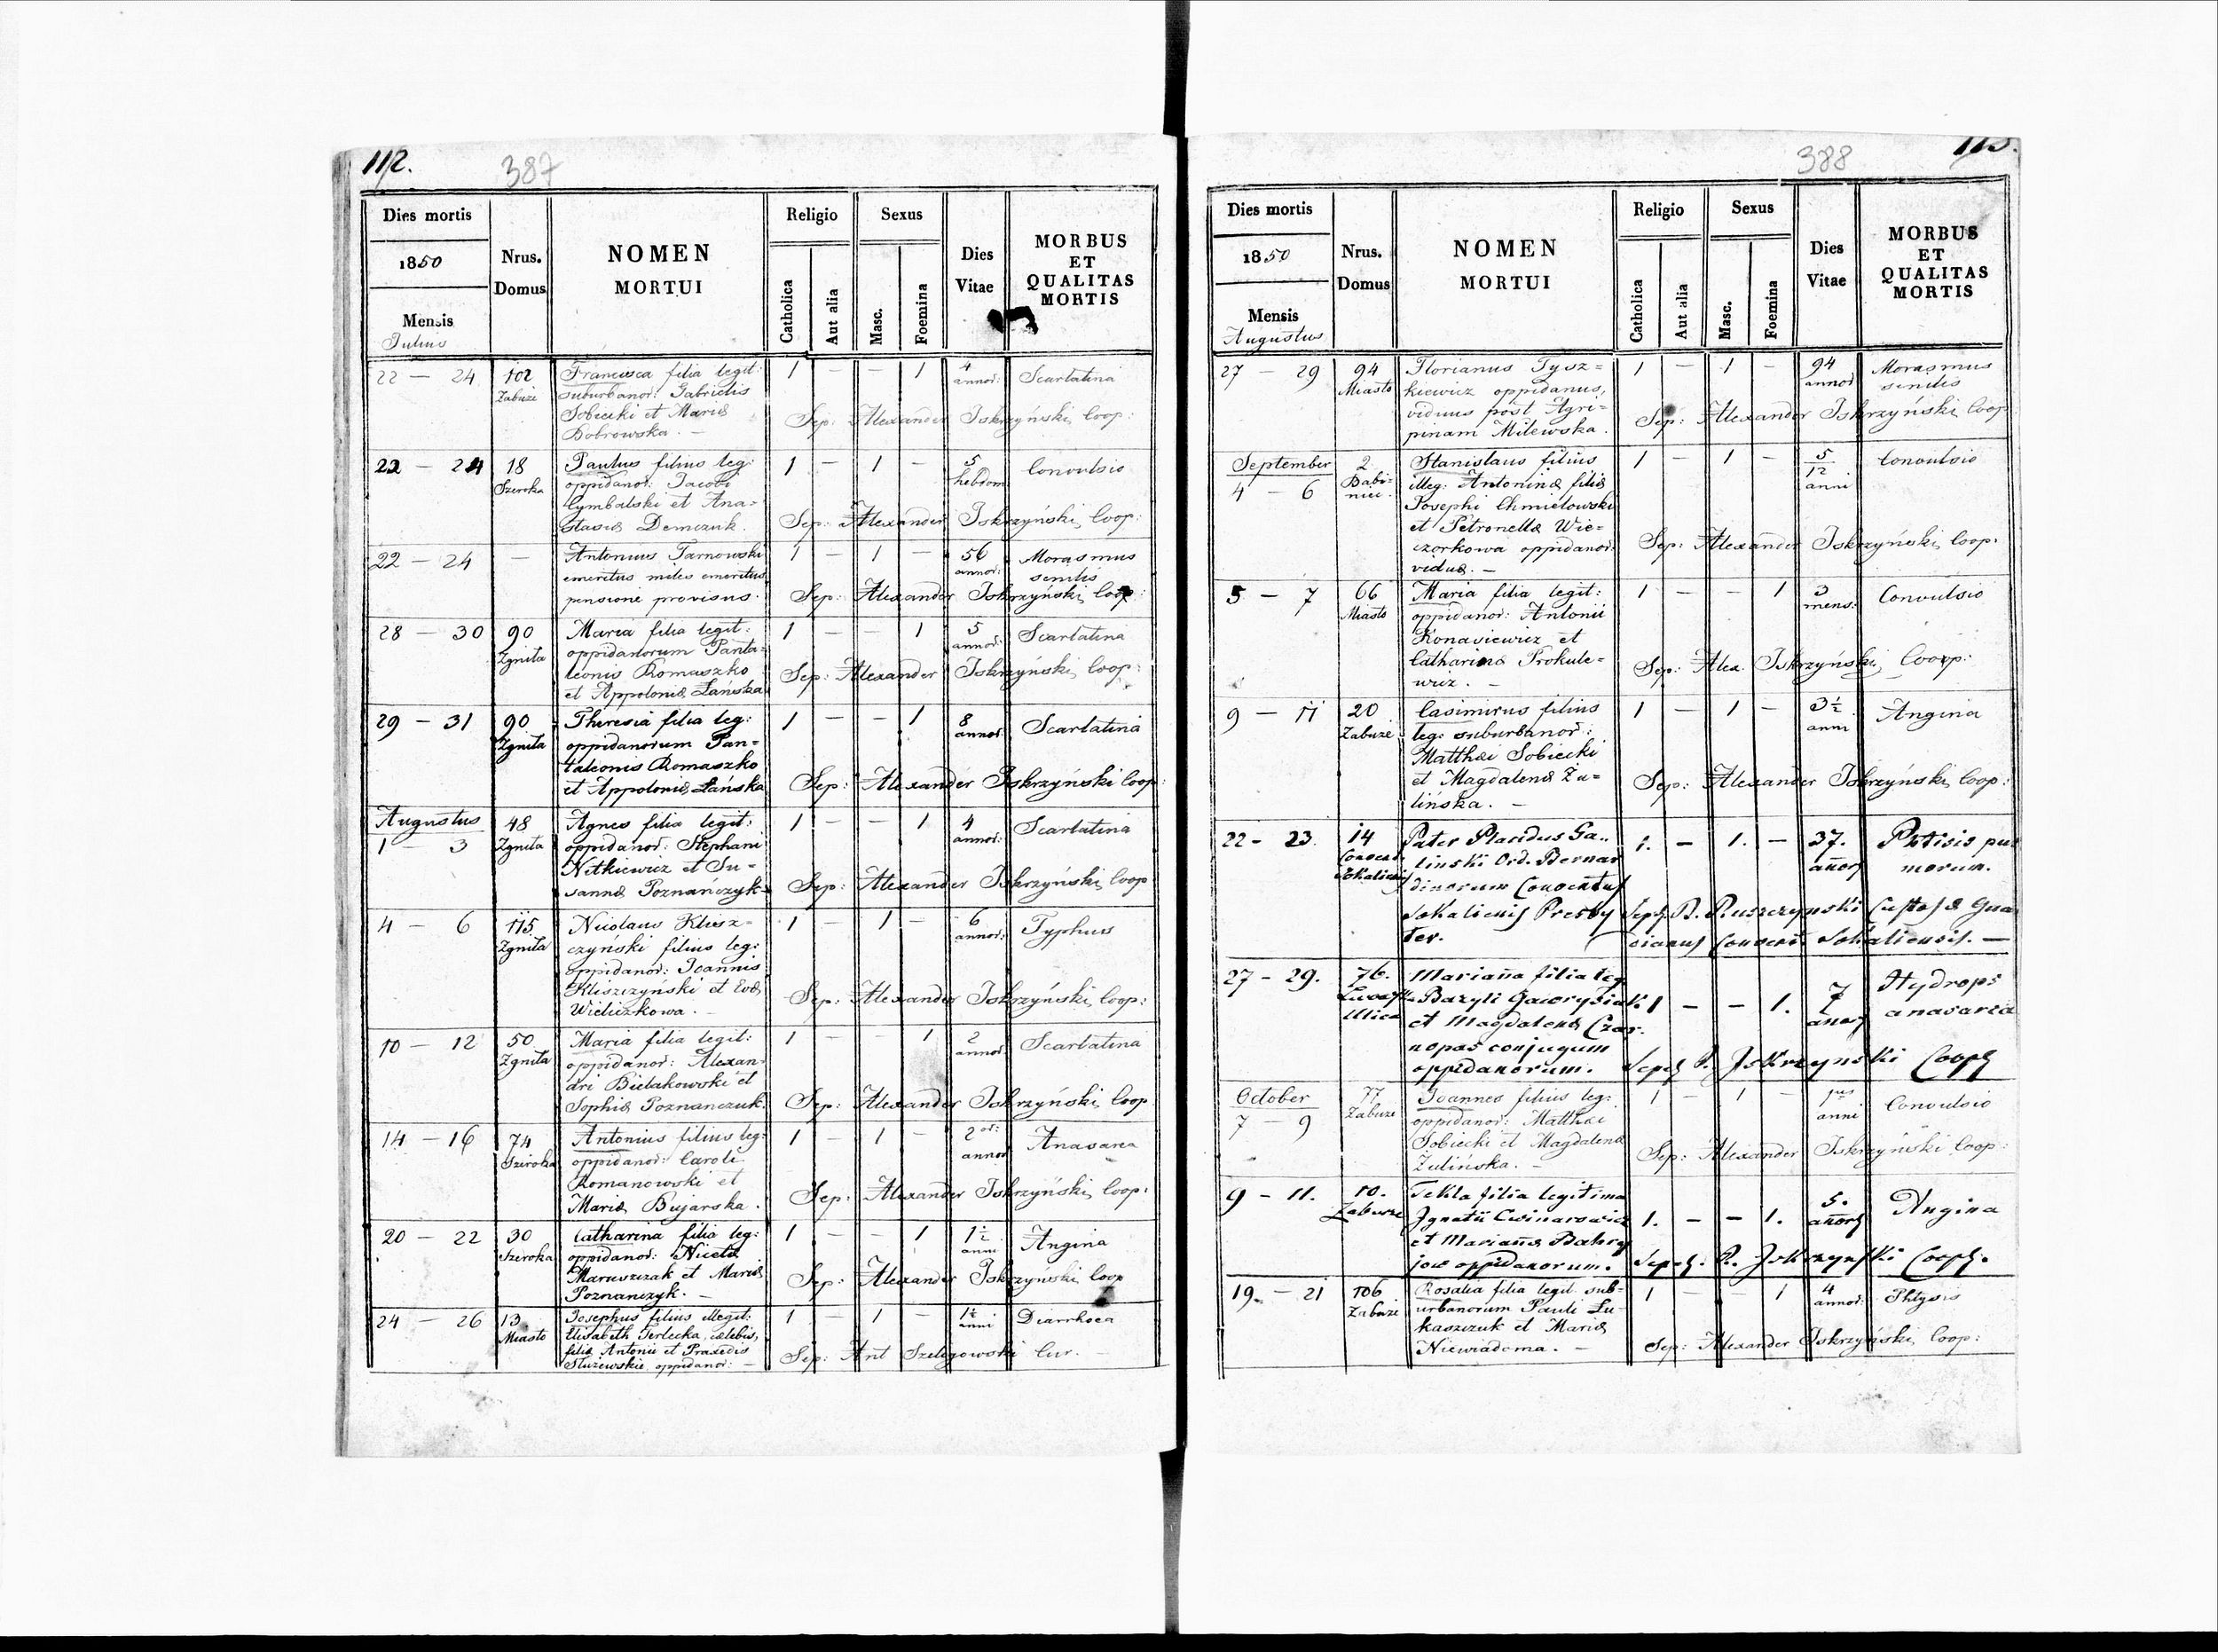 112.
387
Dies mortis
1850
Mensis
Julius
Nrus.
Domus
NOMEN
MORTUI
Religio
Catholica
Aut alia
Sexus
Masc.
Foemina
Dies
Vitae
MORBUS
ET
QUALITAS
MORTIS
22 — 24
102
Zabuże
Francisca filia legit:
suburbanor: Gabrielis
Sobiecki et Mariæ
Bobrowska. —
1 — — 1
4
annor:
Scarlatina
Sep: Alexander Iskrzyński, Coop:
22 — 24
18
Szeroka
Paulus filius leg:
oppidanor: Jacobi
Cymbalski et Ana-
stasiæ Demczuk.
1 — 1 —
5
hebdom
Convulsio
Sep: Alexander Iskrzyński, Coop:
22 — 24
—
Antonius Tarnowski
emeritus miles emeritus
pensione provisus.
1 — 1 —
56
annor:
Morasmus
senilis
Sep: Alexander Iskrzyński, Coop:
28 — 30
90
Zgniła
Maria filia legit:
oppidanorum Panta-
leonis Romaszko
et Appoloniæ Łańska
1 — — 1
5
annor:
Scarlatina
Sep: Alexander Iskrzyński, Coop:
29 — 31
90
Zgniła
Theresia filia leg:
oppidanorum Pan=
taleonis Romaszko
et Appoloniæ Łańska
1 — — 1
8
annor:
Scarlatina
Sep: Alexander Iskrzyński Coop:
Augustus
1 — 3
48
Zgniła
Agnes filia legit:
oppidanor: Stephani
Nitkiewicz et Su-
sannæ Poznańczyk
1 — — 1
4
annor:
Scarlatina
Sep: Alexander Iskrzyński, Coop
4 — 6
115
Zgniła
Nicolaus Klusz-
czyński filius leg:
oppidanor: Joannis
Kliszczyński et Evæ
Wieliczkowa. —
1 — 1 —
6
annor:
Typhus
Sep: Alexander Iskrzyński, Coop:
10 — 12
50
Zgniła
Maria filia legit:
oppidanor: Alexan-
dri Bielakowski et
Sophiæ Poznanczuk.
1 — — 1
2
annor
Scarlatina
Sep: Alexander Iskrzyński, Coop
14 — 16
74
Szeroka
Antonius filius leg:
oppidanor: Caroli
Romanowski et
Mariæ Bujarska.
1 — 1 —
2
annor
Anasarca
Sep: Alexander Iskrzyński, Coop:
20 — 22
30
Szeroka
Catharina filia leg:
oppidanor: Nicetæ
Maruszczak et Mariæ
Poznanczyk. —
1 — — 1
1½
anni
Angina
Sep: Alexander Iskrzyński, Coop
24 — 26
13
Miasto
Josephus filius illegit:
Elisabeth Terlecka, cælebis,
filiæ Antonii et Praxedis
Służewskie oppidanor: —
1 — 1 —
anni
Diarrhoea
Sep: Ant Szeligowski Cur. —
388
113.
Dies mortis
1850
Mensis
Augustus
Nrus.
Domus
NOMEN
MORTUI
Religio
Catholica
Aut alia
Sexus
Masc.
Foemina
Dies
Vitae
MORBUS
ET
QUALITAS
MORTIS
27 — 29
94
Miasto
Florianus Tysz=
kiewicz oppidanus,
viduus post Agri-
pinam Milewska.
1 — 1 —
94
annor
Morasmus
senilis
Sep: Alexander Iskrzyński, Coop
September
4 — 6
2
Babi-
niec.
Stanislaus filius
illeg: Antoninæ filiæ
Josephi Chmielowski
et Petronellæ Wie=
czorkowa oppidanor:
viduæ. —
1 — 1 —
5
12
anni
Convulsio
Sep: Alexander Iskrzyński, Coop:
5 — 7
66
Miasto
Maria filia legit:
oppidanor: Antonii
Konasiewicz et
Catharinæ Prokule-
wicz. —
1 — — 1
3
mens:
Convulsio
Sep: Alex. Iskrzyński, Coop:
9 — 11
20
Zabuże
Casimirus filius
leg: suburbanor:
Matthæi Sobiecki
et Magdalenæ Zu-
lińska. —
1 — 1 —
3½
anni
Angina
Sep: Alexander Iskrzyński, Coop:
22 - 23.
14
Pater Placidus Ga..
linski Ord. Bernar
dinorum Conventus
Sokaliensis Presby
ter.
1. — 1. —
37.
annor
Phtisis pul
morum.
Sepel. B. Ruszczynski Custos & Gua
dianus Convent. Sokaliensis. —
27 - 29.
76.
Ulica
Marianna filia leg
Bazyli Gaworysiak
et Magdalenæ Czar.
nopas conjugum
oppidanorum.
1 — — 1.
7
annor
Hydrops
anasarca
Sepel P. Iskrzynski Coop
October
7 — 9
77
Zabuże
Joannes filius leg:
oppidanor: Matthæi
Sobiecki et Magdalenæ
Żulińska. —
1 — 1 —
anni
Convulsio
Sep: Alexander Iskrzyński Coop:
9 - 11.
10.
Zabuże
Tekla filia legitima
Ignatii Cwinarowicz
et Mariannæ Bahry
jow oppidanorum.
1. — — 1.
5.
annor
Angina
Sepel. R. Iskrzynski Coop.
19. — 21
106
Zabuże
Rosalia filia legit. sub-
urbanorum Pauli Łu-
kaszczuk et Mariæ
Niewiadoma. —
1 — 1
4
annor:
Phtysis
Sep: Alexander Iskrzyński, Coop: